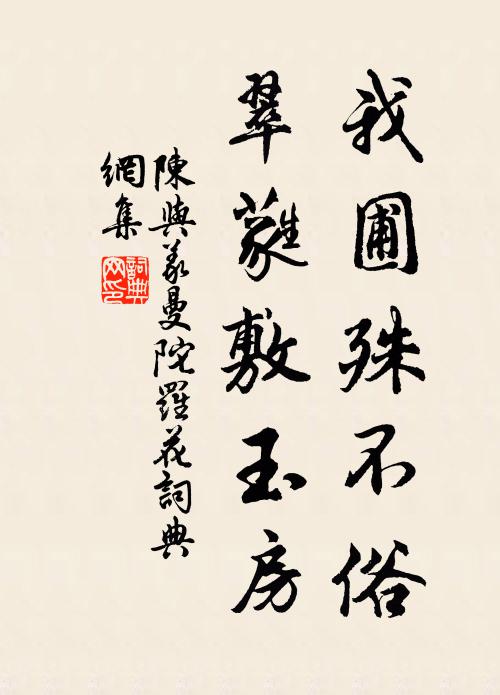 我圃殊不俗
翠蕤敷玉房
陳與義曼陀羅花詞典
網集
詞典網印